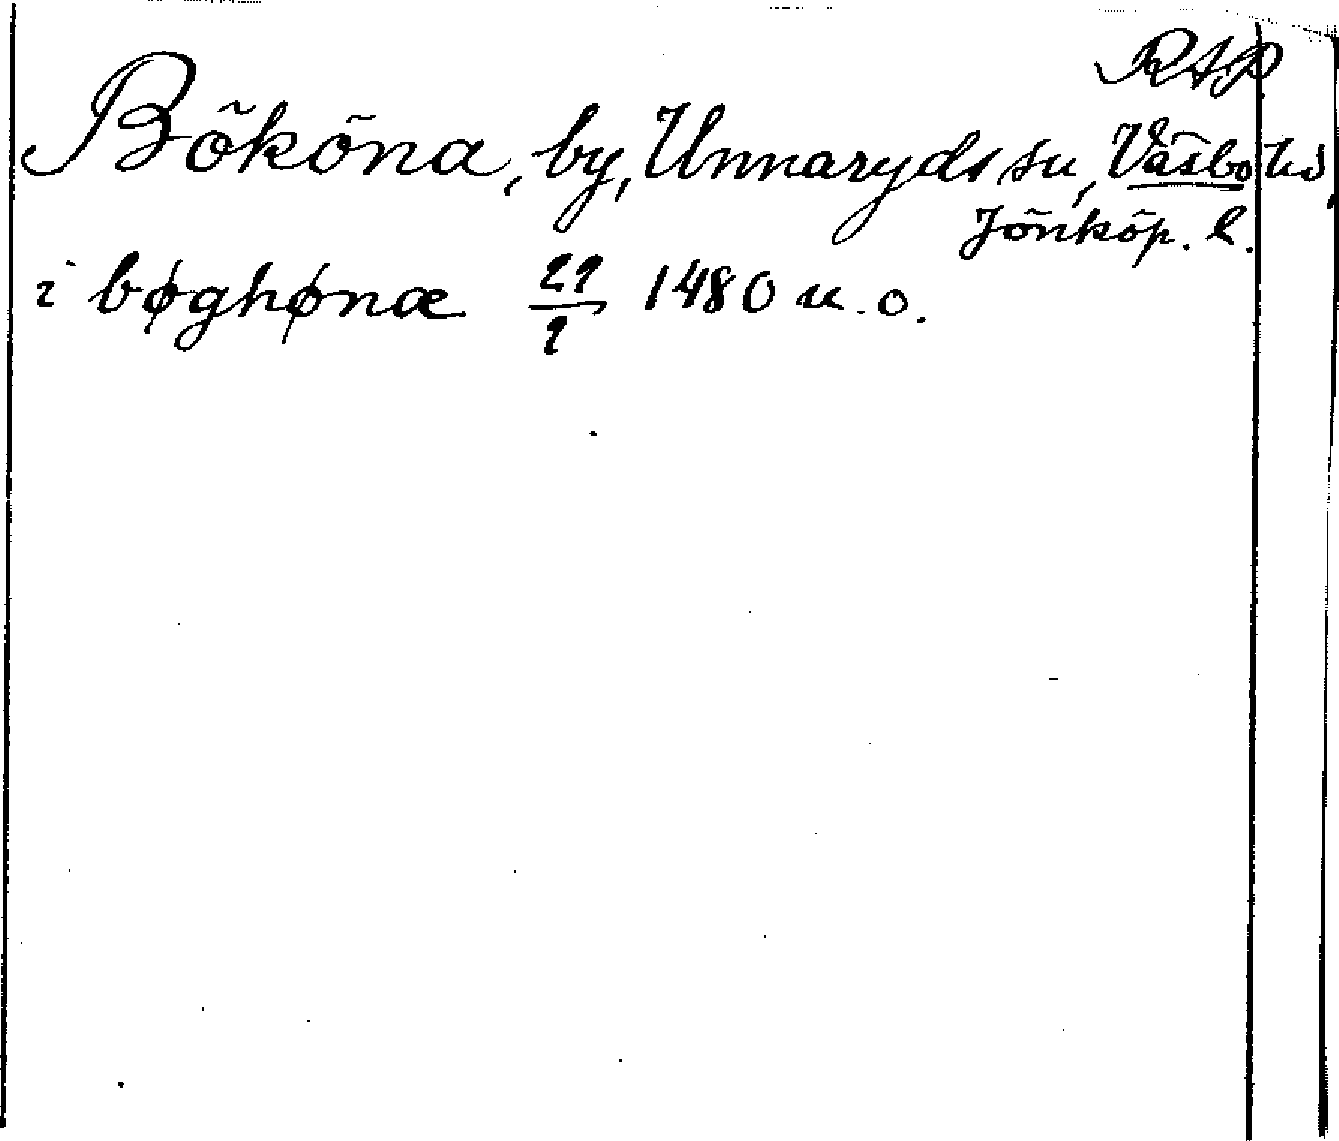 RAP
Bököna, by, Unnaryds sn, Västbo hd,
Jönköp. l.
i bøghønæ 29/9 1480 u. o.